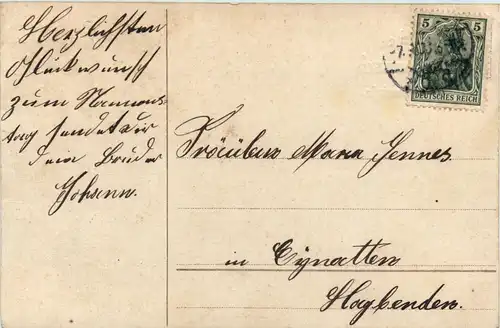 Herzlichsten
Glückwunsch
zum Namens
tag sendet dir
dein Bruder
Johann.
5 5
DEUTSCHES REICH
Fräulein Maria Jennes
in Eynatten
Hagbenden.